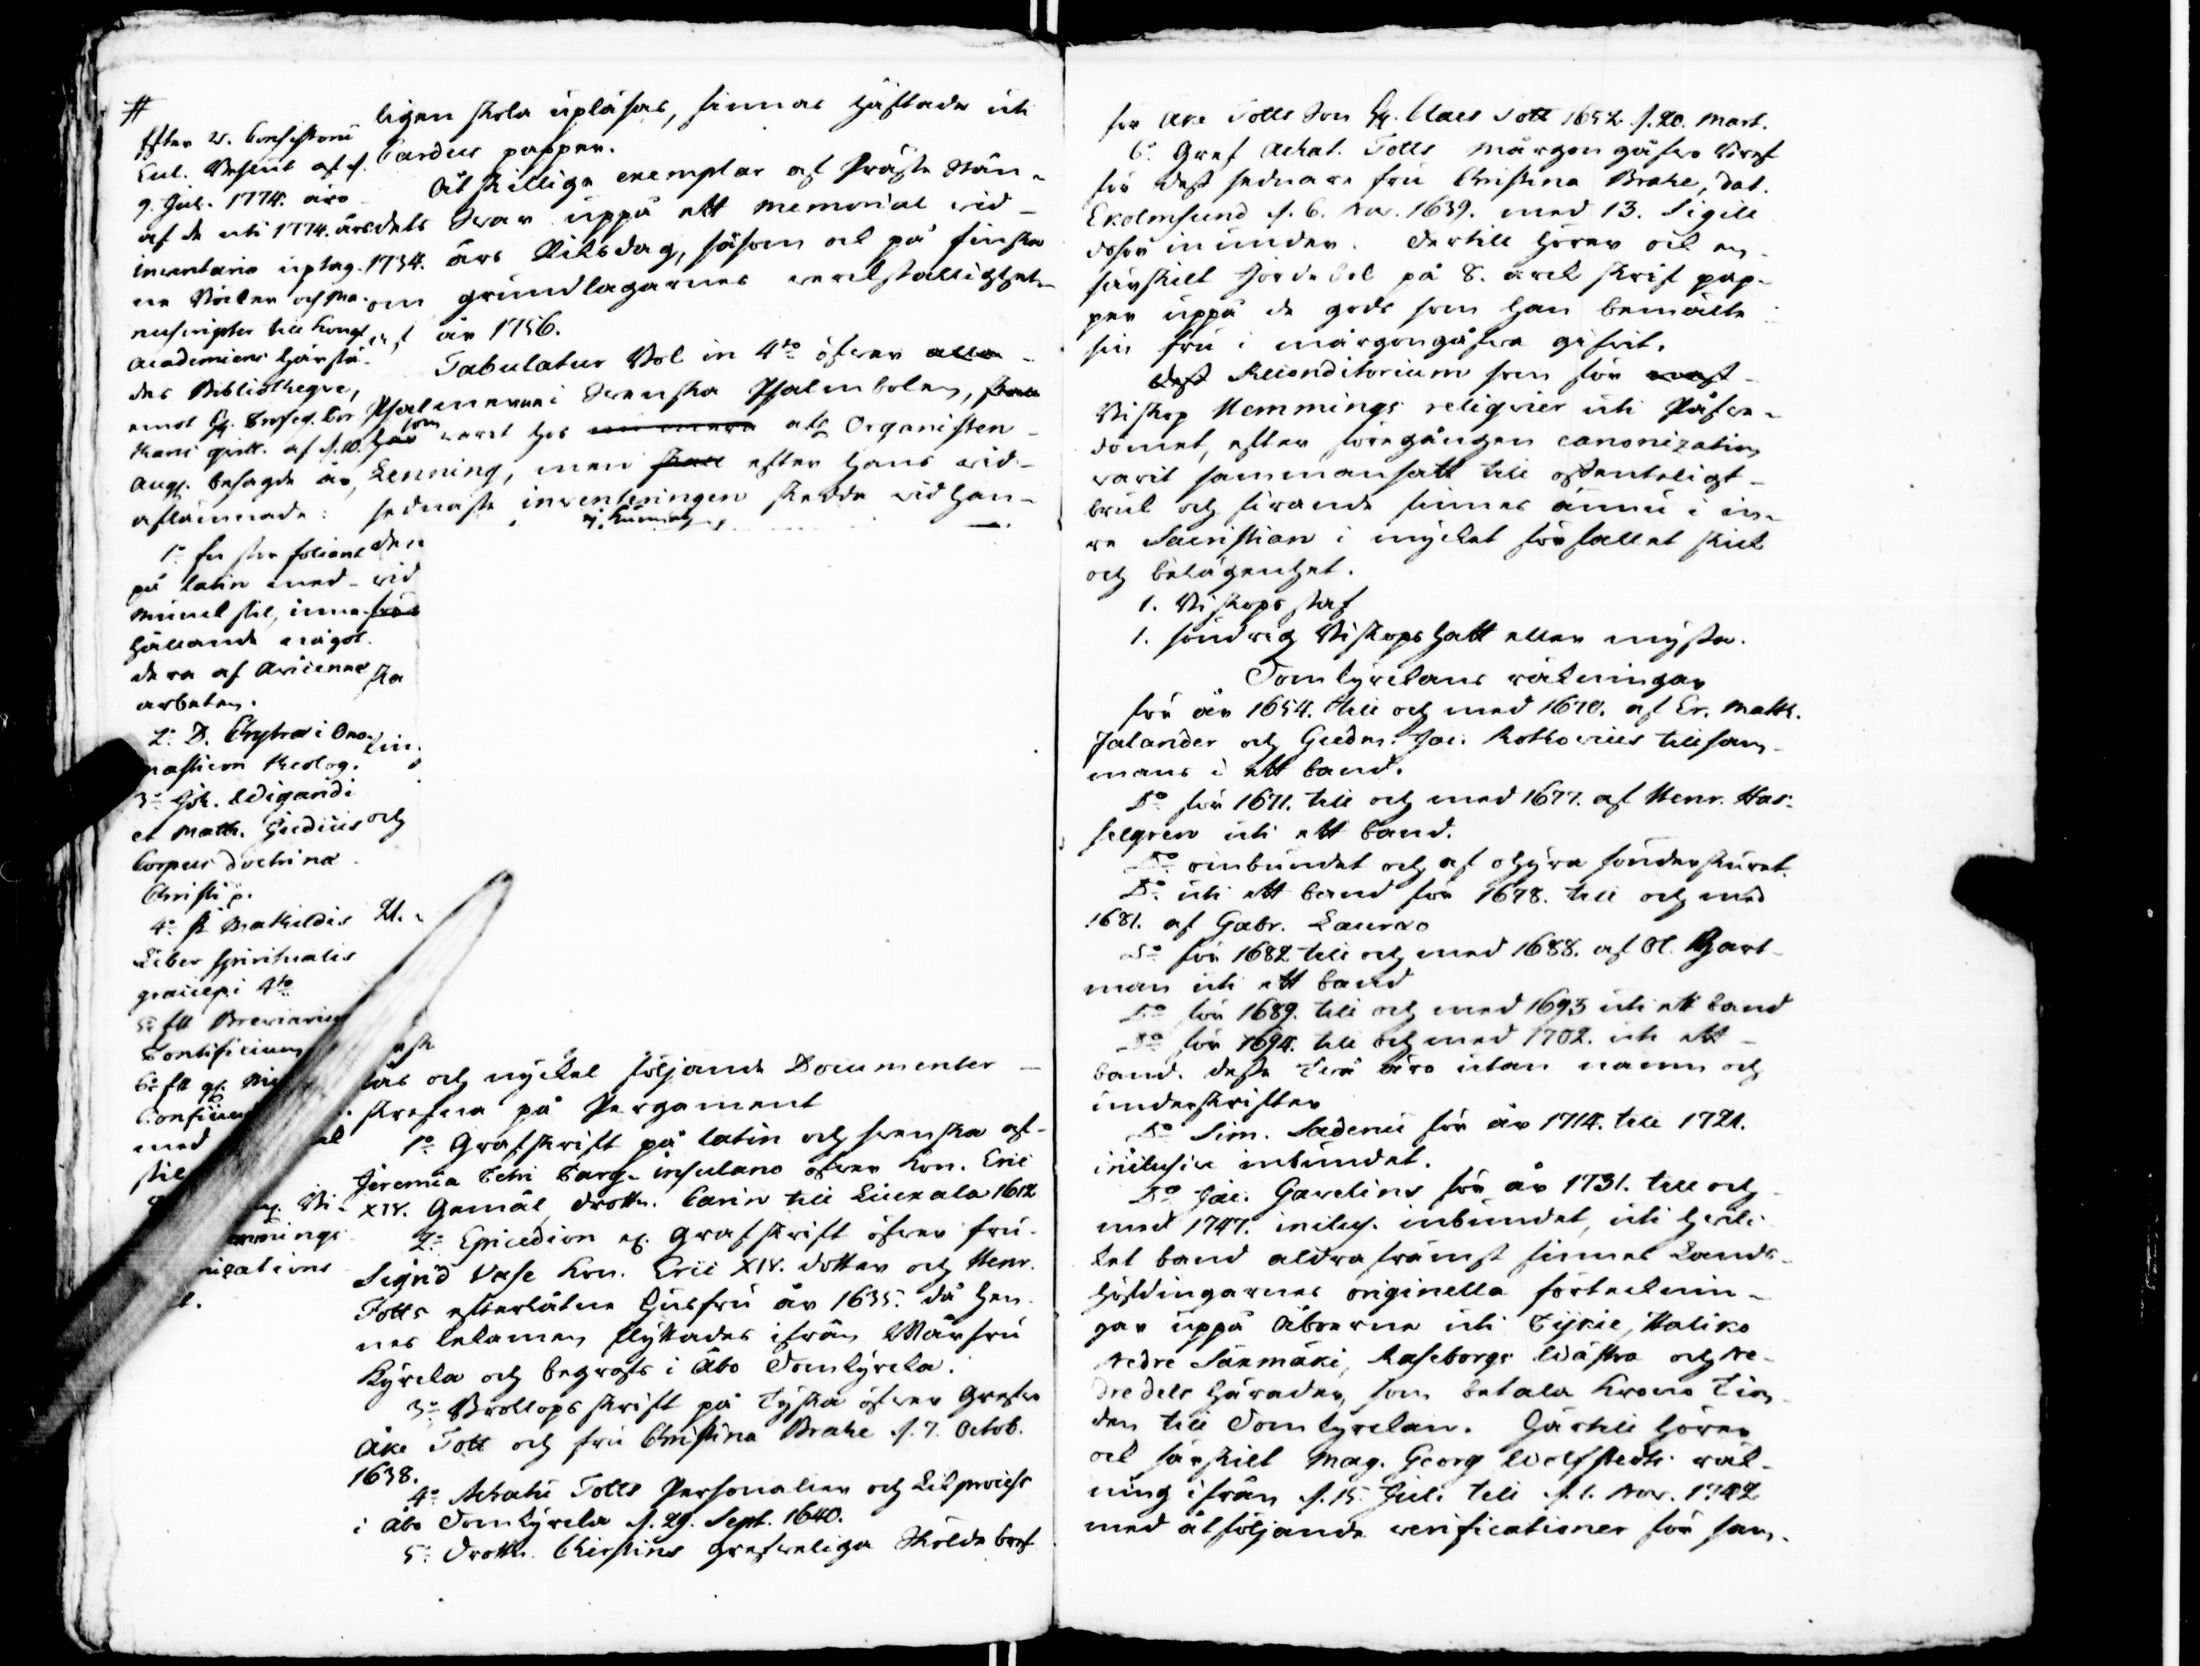 #
Efter v. Consistorii
Eccl. Beslut af d.
9. Jul. 1774. äro
af de uti 1774. års
inventario uptag-
ne Böcker och Ma-
nuscripter till Kongl.
Academiens härstä-
des Bibliotheque,
emot
qvitt. af d. 10.
Aug. besagde år,
aflämnade:
1:o En stor foliant
på latin med
Munck stil, inne-
hållande något-
dera af Avicennæ
arbeten.
2:o D. Chytræi Ono-
masticon theolog.
3:o Joh. Wigandi
et Math. Judicis
Corpus doctrinæ
Christi p.
4:o St Mathildis
Liber spiritualis
gratiæ p. i 4to
5:o Ett Breviarium
Pontificium
6:o Ett
med
stil
ligen skola upläsas, finnas häftade uti
Cardus papper.
Åtskillige exemplar af Präste Stån-
dets Svar uppå ett Memorial vid
1734. års Riksdag, såsom ock på finska
om grundlagarnes verckställighet
år 1756.
Tabulatur Vol in 4to öfver alla
Psalmerne i Svenska Psalmboken, skall
som varit hos Organisten
Lenning, men skall efter hans vid
sednaste inventeringen skedde vid han-
den
vid
ska
och
21.
tas och nyckel följande Documenter
skrefna på Pergament
1:o Grafskrift på latin och svenska af
Jeremia Petri insulano öfver Kon. Eric
XIV. Gemål, Drottn. Carin till Liuxala 1612
2:o Epicedion eg. Grafskrift öfver fru
Sigrid Vase Kon. Eric XIV. dotter och Henr.
Totts efterlåtne Husfru år 1635. då hen-
nes lekamen flyttades ifrån Wårfru
Kyrcka och begrofs i Åbo Domkyrcka.
3:o Bröllops skrift på Tyska öfver Grefve
Åke Tott och fru Christina Brahe d. 7. Octob.
1638.
4:o Achatii Totts Personalier och Likprocess
i Åbo Domkyrcka d. 29. Sept. 1640.
5:o Drottn. Christins Grefveliga Skölde bref
för Åke Totts Son Hr. Claes Tott 1652 d. 20. Mart.
6:o Gref Achat. Totts Morgongåfvo Bref
för dess sednare fru Christina Brahe, dat.
Ekolmsund d. 6. Nov. 1639. med 13. Sigill
dosor inunder. Dertill hörer ock en
särskilt Jordebok på 8. arck skrif pap-
per uppå de gods som han bemälte
sin fru i morgongåfva gifvit.
Dess Reconditorium som för
Biskop Hemmings reliqvier uti Påfve-
dömet, efter föregången canonization
varit sammansatt till offenteligt
bruk och firande finnes ännu i in-
re Sacristian i mycket förfallet skick
och belägenhet.
1. Biskops staf
1. söndrig Biskops hatt eller myssa.
Domkyrckans räkningar
för år 1654. till och med 1670. af Er. Math.
Jalander och Gudm. Jac. Rothovius tillsam-
mans i ett band.
D:o för 1671. till och med 1677. af Henr. Has-
selgren uti ett band.
D:o oinbundet och af ohyra sönderskuret.
D:o uti ett band för 1678. till och med
1681. af Gabr. Lauræo
D:o för 1682 till och med 1688. af Ol.
man uti ett band
D:o för 1689. till och med 1693 uti ett band
D:o för 1694. till och med 1702. uti ett
band. Desse två äro utan namn och
underskrifter
D:o Sim. Sadenii för år 1714. till 1721.
inclusive inbundet.
D:o Jac. Gavelins för år 1731. till och
med 1747. inclus. inbundet, uti hvil-
ket band aldra främst finnes Lands-
höfdingarnes originella förtecknin-
gar uppå Åboerne uti Pijkie, Haliko
Nedre Säxmäki, Raseborgs Wästra och Ne-
dredels härader, som betala Krono Tion-
den till Domkyrckan. Härtill hörer
ock särskilt Mag. Georg Wolfstedts räk-
ning ifrån d. 15. Juli till d. 1. Nov. 1742
med åtföljande verificationer för sam-